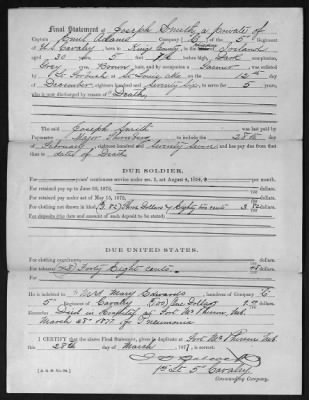 Final Statement of Joseph Smith, a private of
Captain Emil Adams Company (C) of the 5th Regiment
of U.S. Cavalry, born in Kings County, in the of Ireland
aged 30 years, 5 feet high, Dark complexion,
Grey eyes, Brown hair, and by occupation a Farmer was enlisted
by Lt. at St. Louis Mo on the 12th day of
December eighteen hundred and seventy six, to serve for 5 years,
who is now discharged by reason of Death,
The said Joseph Smith was last paid by
Paymaster Major to include the 28th day
of February, eighteen hundred and seventy seven and has pay due from that
date to date of Death
DUE SOLDIER.
For years' continuous service under sec. 2, act August 4, 1854, $
For retained pay up to June 30, 1875,
For retained pay under act of May 15, 1872,
For clothing not drawn in kind, (3.82) Three Dollars & Eighty two cents 3 82/100 dollars.
For deposits (the date and amount of each deposit to be stated)
DUE UNITED STATES.
For clothing overdrawn, dollars.
For tobacco, (48) Forty Eight cents. 48/100 dollars.
He is indebted to Mrs Mary Edwards, laundress of Company C
5th Regiment of Cavalry (1.00) One Dollar 1.00 dollars.
Remarks: Died in Hospital at Fort McPherson, Neb.
March 28th 1877 of Pneumonia
I CERTIFY that the above Final Statement, given in duplicate at Fort McPherson Neb.
this 28th day of March, 1877, is correct.
1st Lt. 5th Cavalry
Commanding Company.